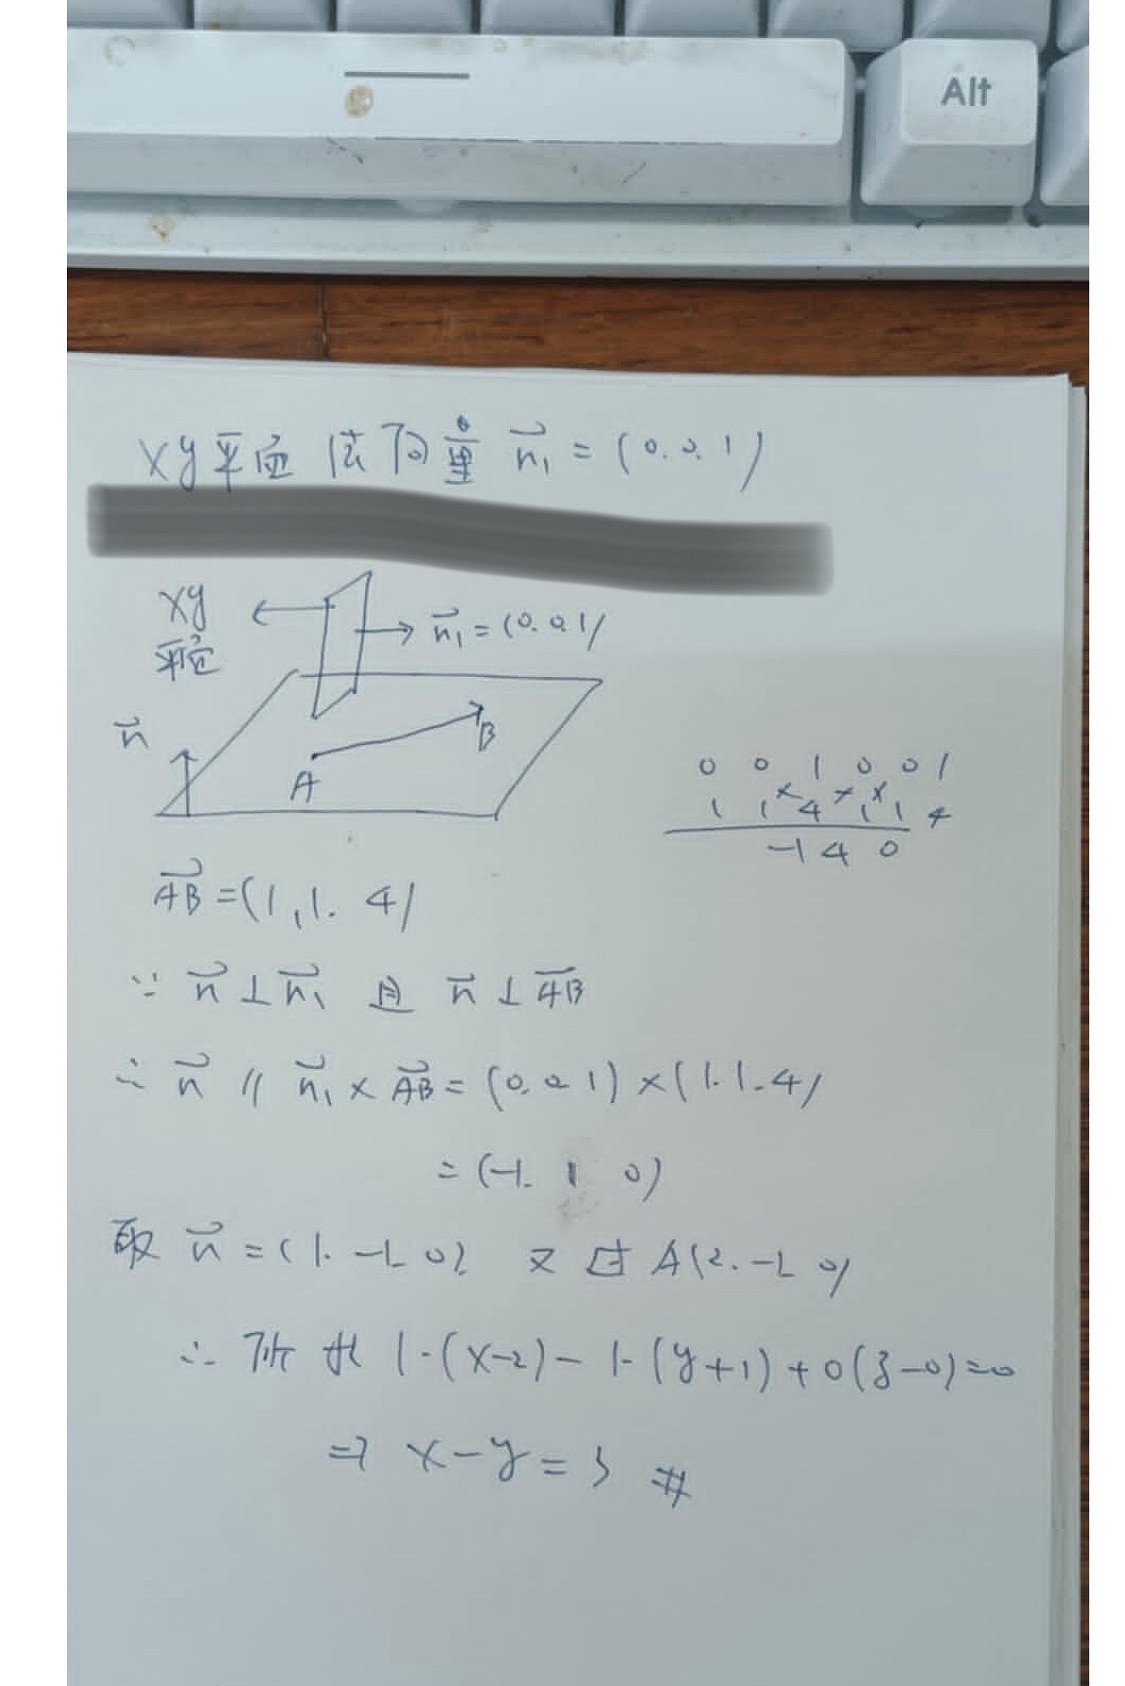 Alt
xy平面 法向量 n₁ = (0. 0. 1)
xy
平面
n₁ = (0. 0. 1)
n
A
B
0 0 1 0 0 1
1 1 4 1 1 4
-1 4 0
AB = (1, 1. 4)
∵ n ⊥ n₁ 且 n ⊥ AB
∴ n // n₁ × AB = (0. 0. 1) × (1. 1. 4)
= (-1. 1 0)
取 n = (1. -1. 0), 又过 A(2. -1. 0)
∴ 所求 1·(x-2) - 1·(y+1) + 0(z-0) = 0
⇒ x - y = 3 #